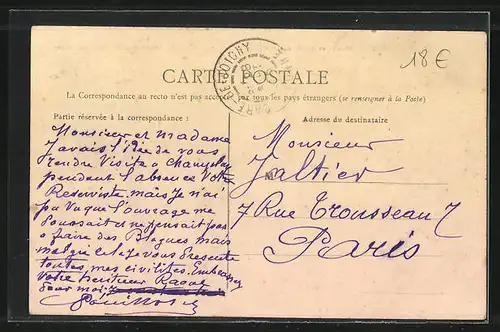 18€
GARE DE JOIGNY
CARTE POSTALE
La Correspondance au recto n'est pas acceptée par tous les pays étrangers (se renseigner à la Poste)
Partie réservée à la correspondance :
Adresse du destinataire
Monsieur et Madame
J'avais l'idée de vous
rendre Visite a
pendant l'absence Votre
Reserviste, mais Je n'ai
pu Vu que l'ouvrage me
Poussait et ne pensait pas
a faire des Blagues mais
malgré cela je vous presente
toutes mes civilités. Embrassez
Votre heritier Raoul
Pour moi
Monsieur
Jaltier
7 Rue Trousseau 7
Paris